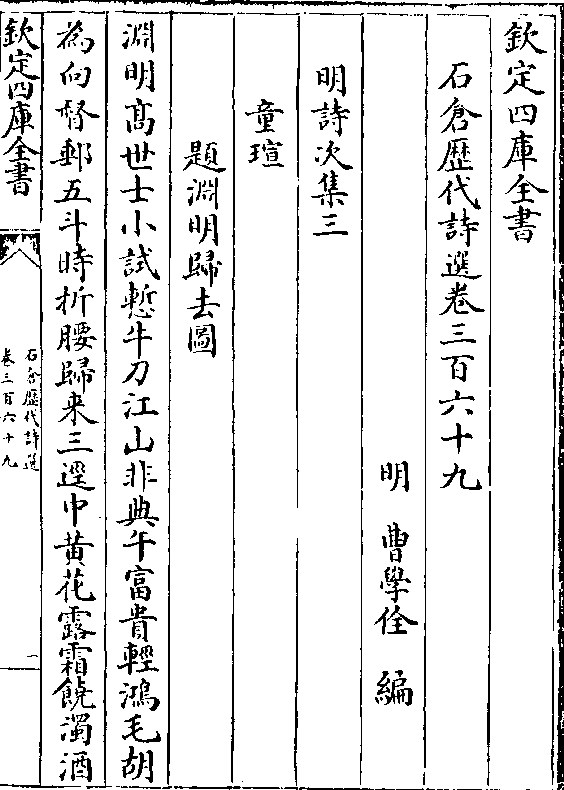 欽定四庫全書
石倉歴代詩選卷三百六十九
明 曹學佺 編
明詩次集三
童瑄
題淵明歸去圖
淵明髙世士小試慙牛刀江山非典午富貴輕鴻毛胡
為向督郵五斗時折腰歸来三逕中黄花露霜饒濁酒
欽定四庫全書
石倉歴代詩選
卷三百六十九
一